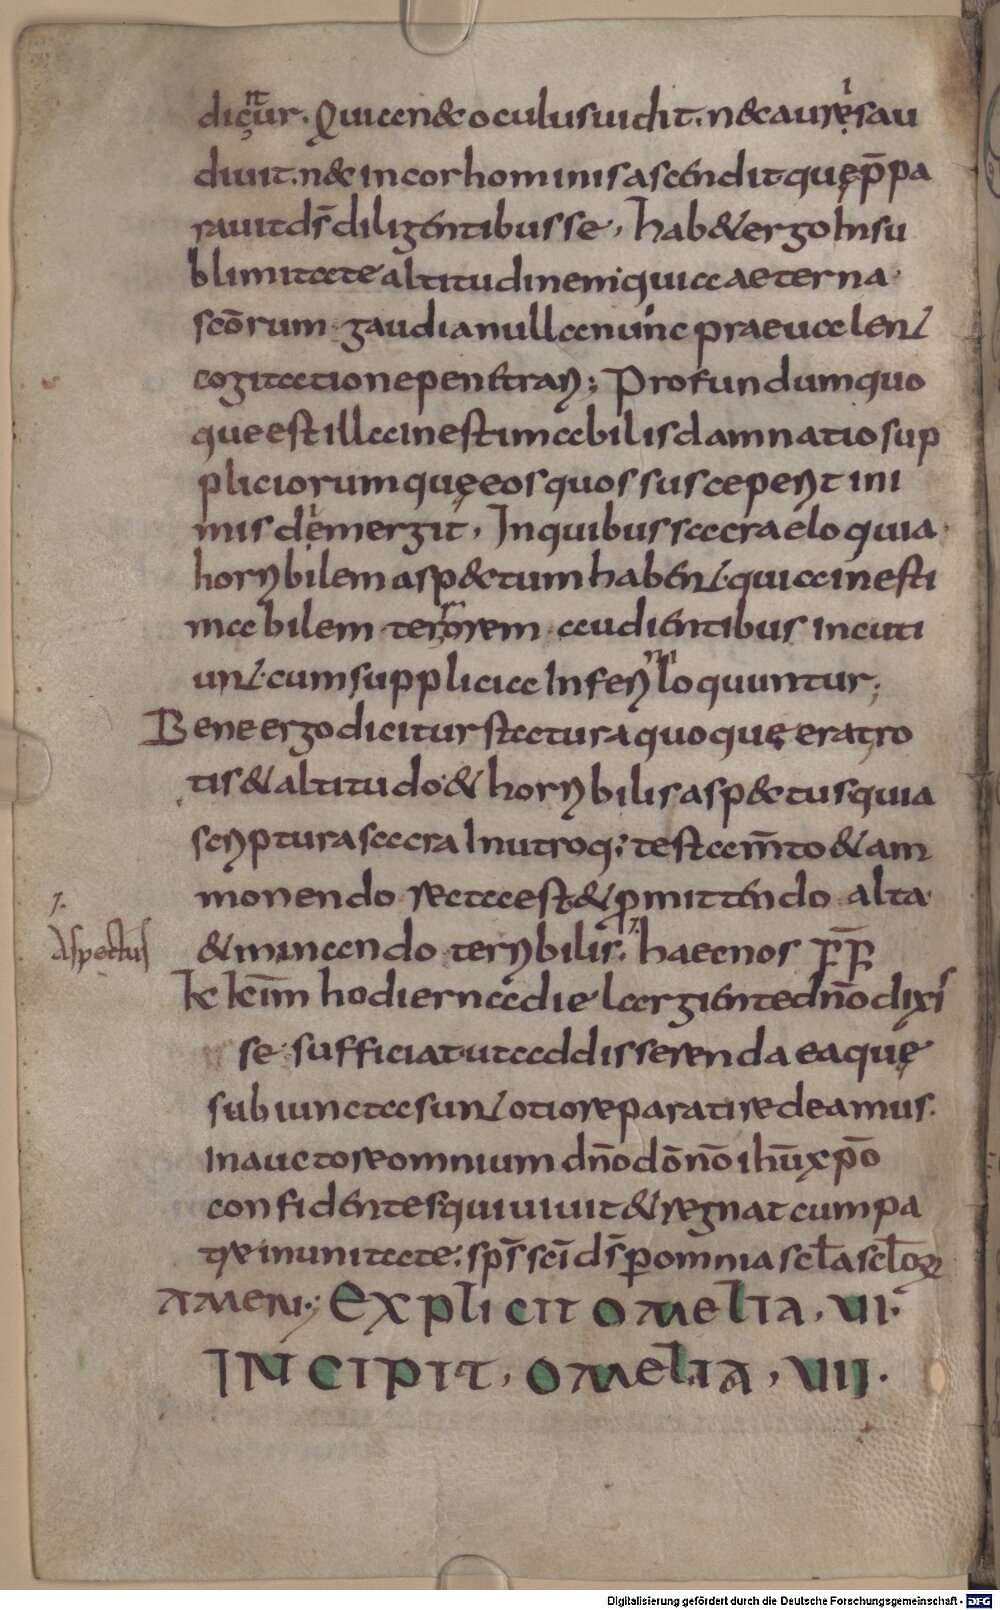 dicuntur. Quia n& oculus uidit. n& auris au
diuit. n& in cor hominis ascendit quę p̄pa
rauit ds̄ diligentibus se, hab& ergo In su
blimitate altitudinem quia aeterna
sc̄orum gaudia nulla nunc praeualent
cogitatione penetrari; Profundum quo
que est illa inestimabilis damnatio sup
pliciorum quę eos quos susceperit in i
mis demergit, In quibus sacra eloquia
horribilem asp&tum habent. quia inesti
mabilem terrorem audientibus incuti
unt. cum supplicia Inferni loquuntur;
Bene ergo dicitur statura quoque erat ro
tis & altitudo & horribilis asp&tus quia
scriptura sacra In utroq; testam̄to & am
monendo recta est & ꝓmittendo alta
& minando terribilis. haec nos F̄F̄
k̄k̄im hodierna die largiente dn̄o dixi
se sufficiat. ut ad disserenda ea quę
subiuncta sunt otio reparati redeamus.
In auctore omnium dn̄o dō nō ihū xp̄o
confidentes qui uiuit & regnat cum pa
tre in unitate. sp̄s sc̄i ds̄ ꝑ omnia scl̄a scl̄oꝝ
AMEN; EXPLICIT OMELIA. VI.
INCIPIT. OMELIA, VII.
Aspectus
Digitalisierung gefördert durch die Deutsche Forschungsgemeinschaft - DFG